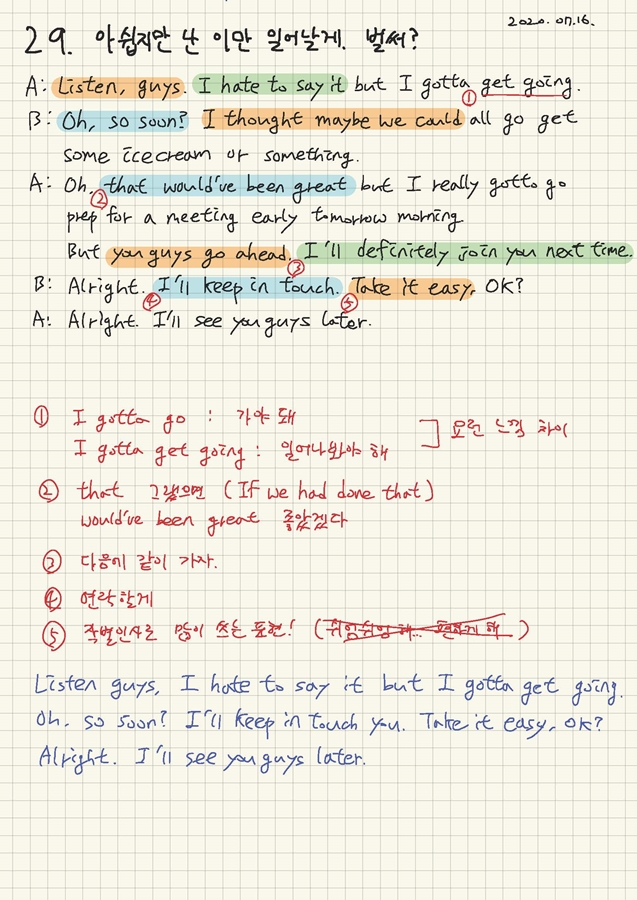 2020. 07. 16.
29. 아쉽지만 난 이만 일어날게. 벌써?
A: Listen, guys. I hate to say it but I gotta get going.
①
B: Oh, so soon? I thought maybe we could all go get
some icecream or something.
A: Oh, that would've been great but I really gotta go
②
prep for a meeting early tomorrow morning
But you guys go ahead. I'll definitely join you next time.
③
B: Alright. I'll keep in touch. Take it easy, OK?
④ ⑤
A: Alright. I'll see you guys later.
① I gotta go : 가야 돼
I gotta get going : 일어나봐야 해
] 요런 느낌 차이
② that 그랬으면 (If we had done that)
would've been great 좋았겠다
③ 다음에 같이 가자.
④ 연락할게
⑤ 작별인사로 많이 쓰는 표현! (쉬엄쉬엄 해... 편하게 해)
Listen guys, I hate to say it but I gotta get going.
Oh, so soon? I'll keep in touch you. Take it easy, OK?
Alright. I'll see you guys later.